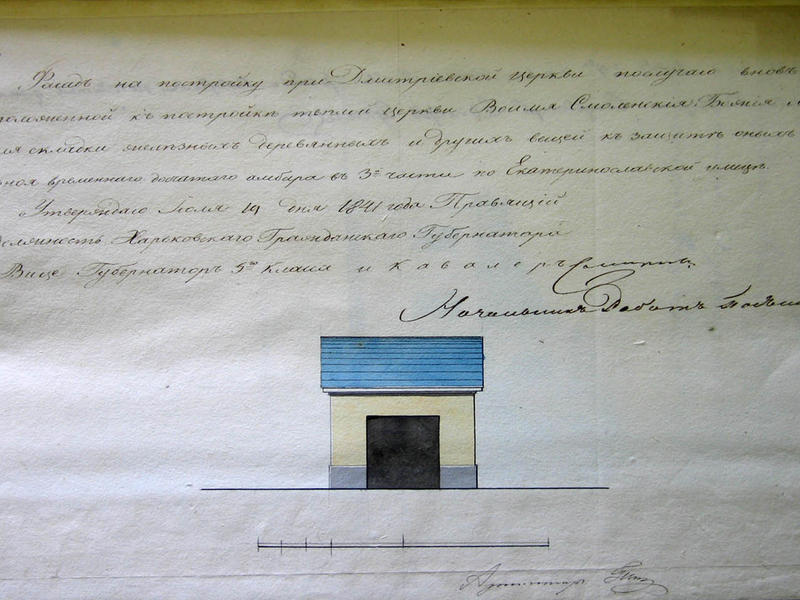 Фасадъ на постройку при Дмитріевской церкви послучаю вновь
положенной къ постройкѣ теплой церкви Воимя Смоленскія Божія
складки желѣзныхъ деревянныхъ и другихъ вещей къ защитѣ оныхъ
временнаго досчатаго амбара въ 3й части по Екатеринославской улицѣ.
Утверждаю Іюля 19 дня 1841 года Правящій
должность Харьковскаго Гражданскаго Губернатора
Вице Губернаторъ 5го класса и кавалеръ
Начальникъ Работъ
Архитекторъ